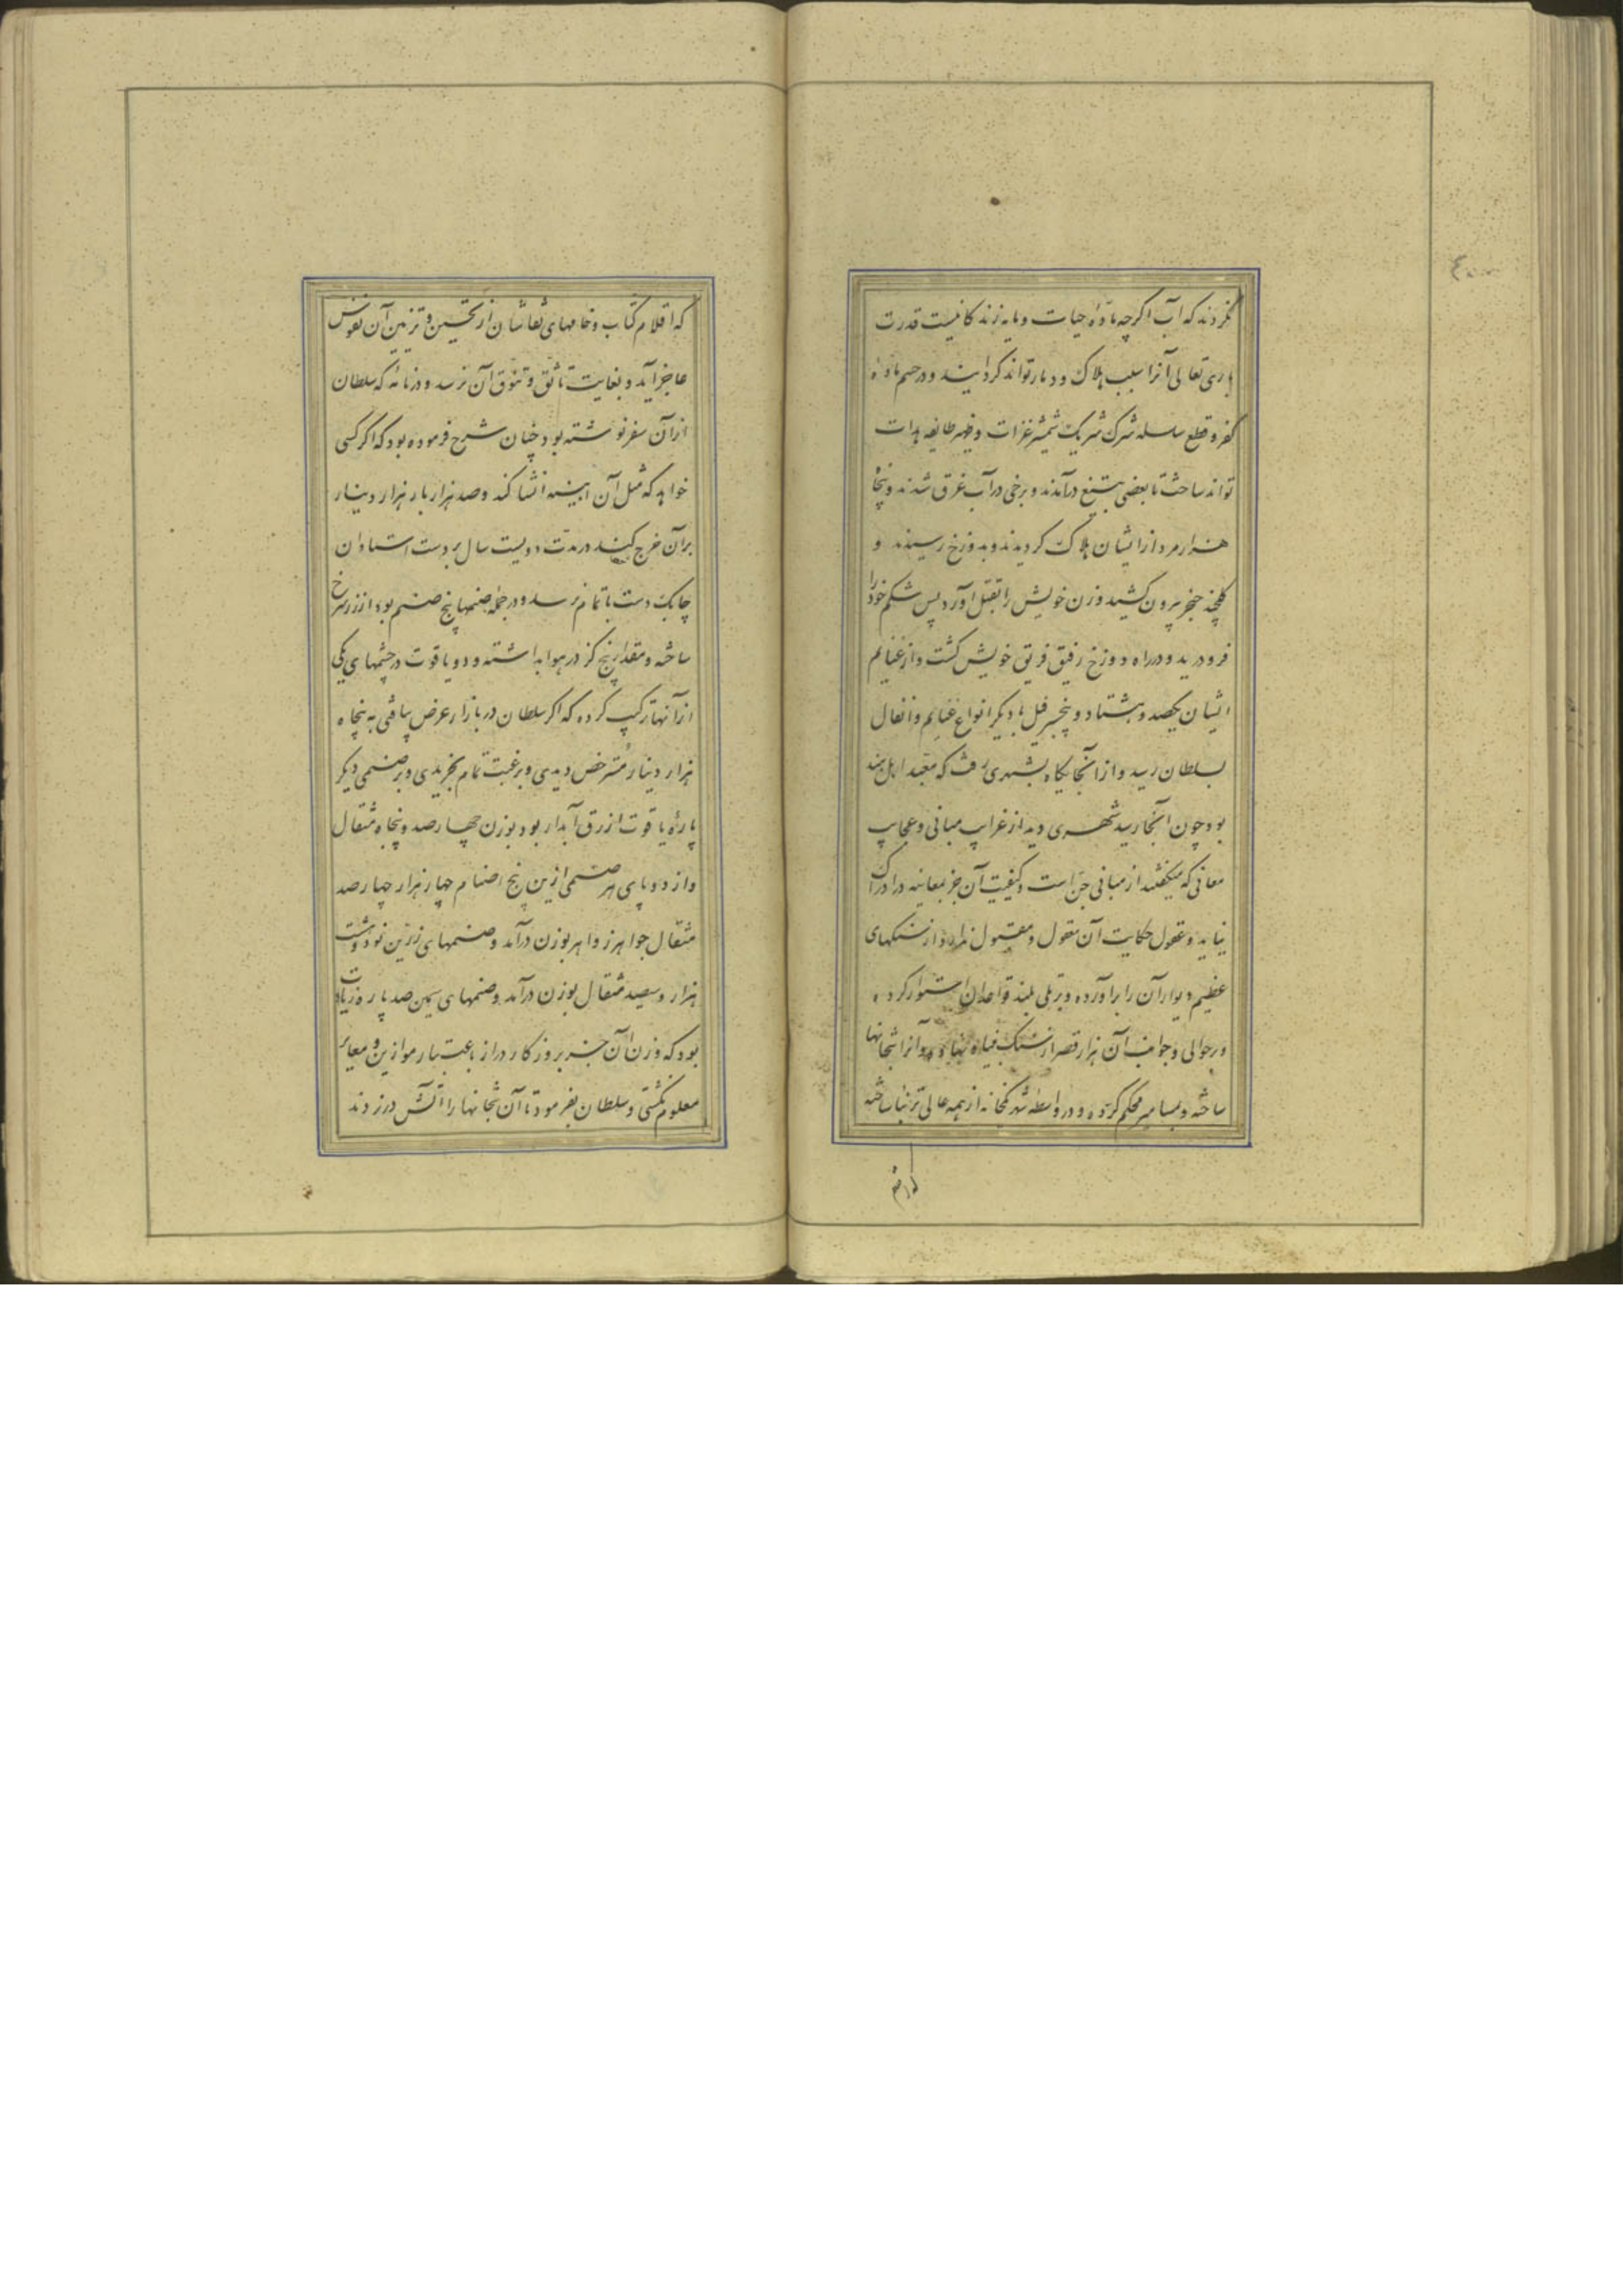 نکردند که آب اگرچه مادّهٔ حیات و مایه زندکانیست قدرت
باری تعالی آنرا سبب هلاک و دمار تواند کردانید و در حسم مادهٔ
کفر و قطع سلسله شرک شریک شمشیر غزات و ظهیر طایفه هدات
تواند ساخت تا بعضی بتیغ درآمدند و برخی در آب غرق شدند و پنجاه
هزار مرد از ایشان هلاک کردیدند و بدوزخ رسیدند و
کلچند خنجر بیرون کشید و زن خویش را بقتل آورد پس شکم خود را
فرو درید و در راه دوزخ رفیق فریق خویش کشت و از غنایم
ایشان یکصد و هشتاد و پنج سر فیل با دیکر انواع غنایم و انفال
بسلطان رسید و از آنجایکاه بشهری رفت که معبد اهل هند
بود چون آنجا رسید شهری دید از غرایب مبانی و عجایب
معانی که میکفتند از مبانی جن است و کیفیت آن جز بمعاینه در ادراک
نیاید و عقول حکایت آن معقول و مقبول ندارد از سنکهای
عظیم دیوار آن را برآورده و بر تلی بلند قواعد آن استوار کرده
و بر حوالی و جوانب آن هزار قصر از سنک بنیاد نهاده و آنرا بتخانها
ساخته و بمسامیر محکم کرده و در واسطه شهر بتخانه از همه عالی تر بنا ساخته
که اقلام
که اقلام کتاب و خامهای نقاشان از تحسین و تزیین آن نقوش
عاجز آید و بغایت تانّق و تنوّق آن نرسد و در نامهٔ که سلطان
از آن سفر نوشته بود چنان شرح فرموده بود که اکر کسی
خواهد که مثل آن ابنیه انشا کند و صد هزار بار هزار دینار
بر آن خرج کند در مدت دویست سال بر دست استادان
چابک دست باتمام نرسد و در جمله صنمها پنج صنم بود از زر سرخ
ساخته و مقدار پنج کز در هوا بداشته و دو یاقوت در چشمهای یکی
از آنها ترکیب کرده که اکر سلطان در بازار عرض یافتی به پنجاه
هزار دینار مُسترخص دیدی و برغبت تمام بخریدی و بر صنمی دیکر
پارهٔ یاقوت ازرق آبدار بود بوزن چهارصد و پنجاه مثقال
و از دو پای هر صنمی ازین پنج اصنام چهار هزار چهارصد
مثقال جواهر زواهر بوزن درآمد و صنمهای زرین نود و هشت
هزار و سیصد مثقال بوزن درآمد و صنمهای سیمین صد پاره زیادت
بود که وزن آن جز بروزکار دراز باعتبار موازین و معایر
معلوم نکشتی و سلطان بفرمود تا آن بتخانها را آتش در زدند